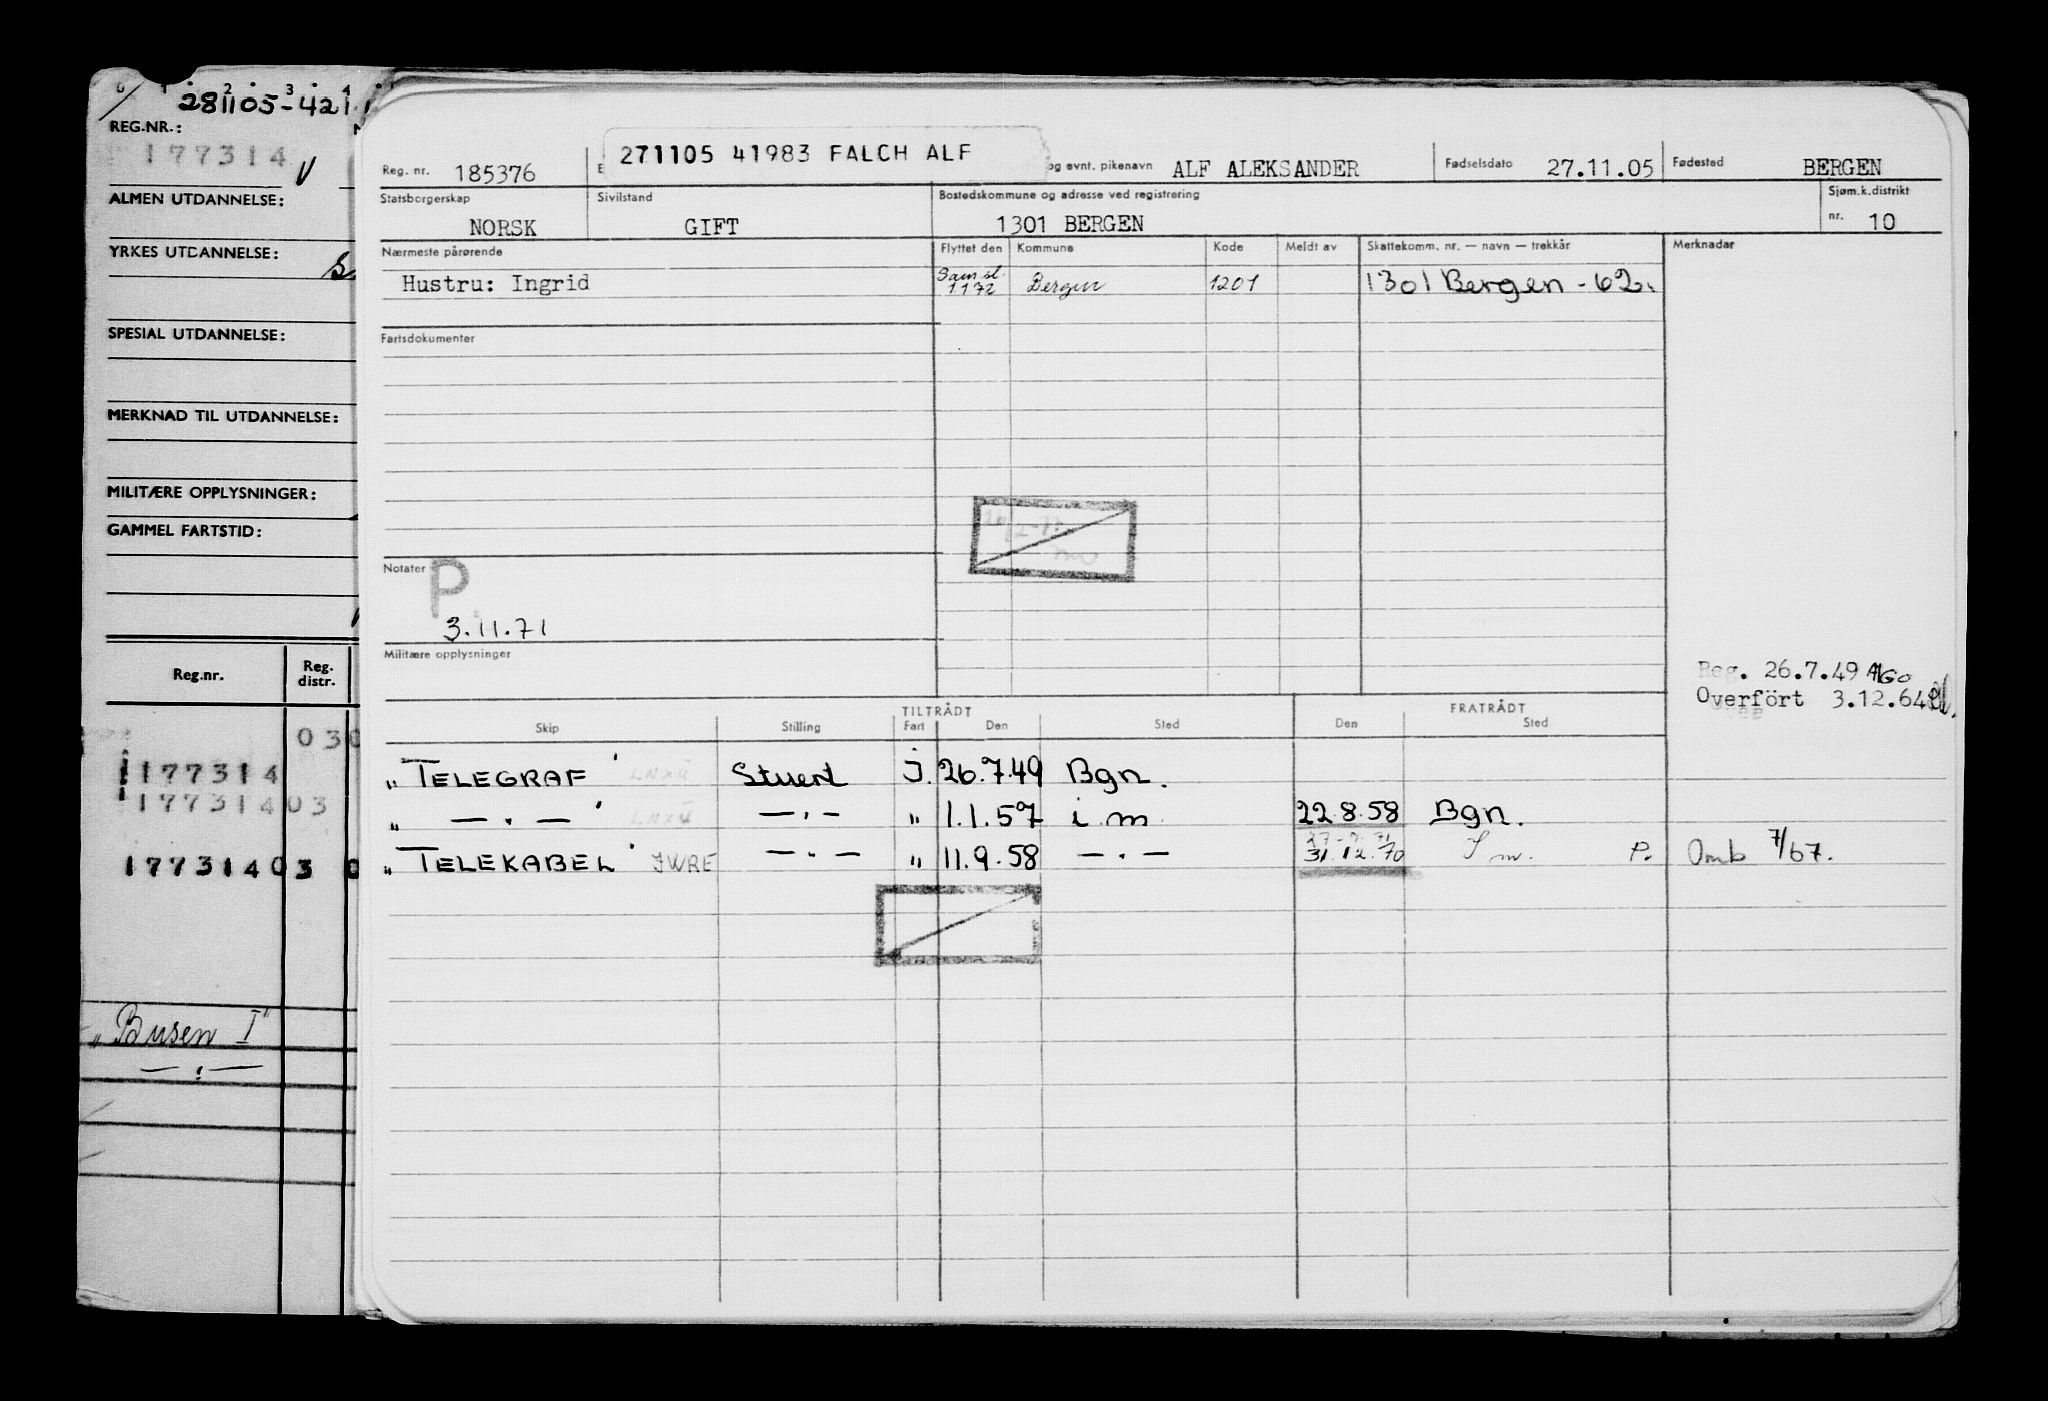 0 1 2 3 4
281105-421
REG.NR.:
177314 V
ALMEN UTDANNELSE:
YRKES UTDANNELSE:
SPESIAL UTDANNELSE:
MERKNAD TIL UTDANNELSE:
MILITÆRE OPPLYSNINGER:
GAMMEL FARTSTID:
Reg.nr. Reg. distr.
03
177314
177314 03
177314 03
"Busen I"
— . —
271105 41983 FALCH ALF
Reg. nr. 185376 og evnt. pikenavn ALF ALEKSANDER Fødselsdato 27.11.05 Fødested BERGEN
Statsborgerskap NORSK Sivilstand GIFT Bostedskommune og adresse ved registrering 1301 BERGEN Sjøm.k.distrikt nr. 10
Nærmeste pårørende Flyttet den Kommune Kode Meldt av Skattekomm. nr. — navn — trekkår Merknader
Hustru: Ingrid Sam sl. 1172 Bergen 1201 1301 Bergen - 62.
Fartsdokumenter
Notater P
3.11.71
Militære opplysninger
Reg. 26.7.49
Overført 3.12.64
TILTRÅDT FRATRÅDT
Skip Stilling Fart Den Sted Den Sted
"TELEGRAF" Stuert J. 26.7.49 Bgn.
" — . — " — . — " 1.1.57 i m 22.8.58 Bgn.
"TELEKABEL" JWRE — . — " 11.9.58 — . — 31.12.70 P. Omb 7/67.